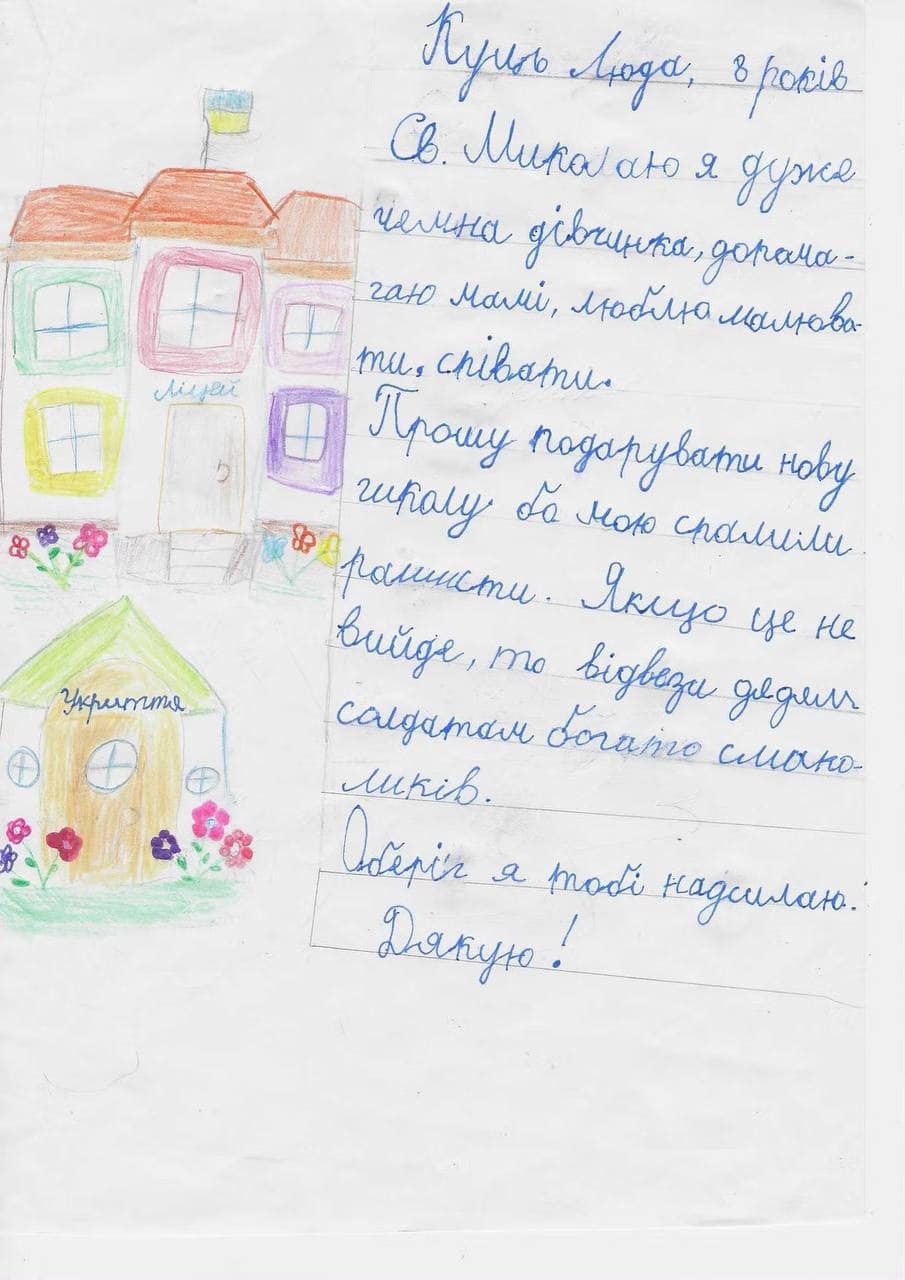 Куль Люда, 8 років
Св. Миколаю я дуже
чемна дівчинка, допома-
гаю мамі, люблю малюва-
ти, співати.
Прошу подарувати нову
школу бо мою спалили
рашисти. Якщо це не
вийде, то відвези дядям
солдатам багато смако-
ликів.
Оберіг я тобі надсилаю.
Дякую!
Ліцей
Укриття